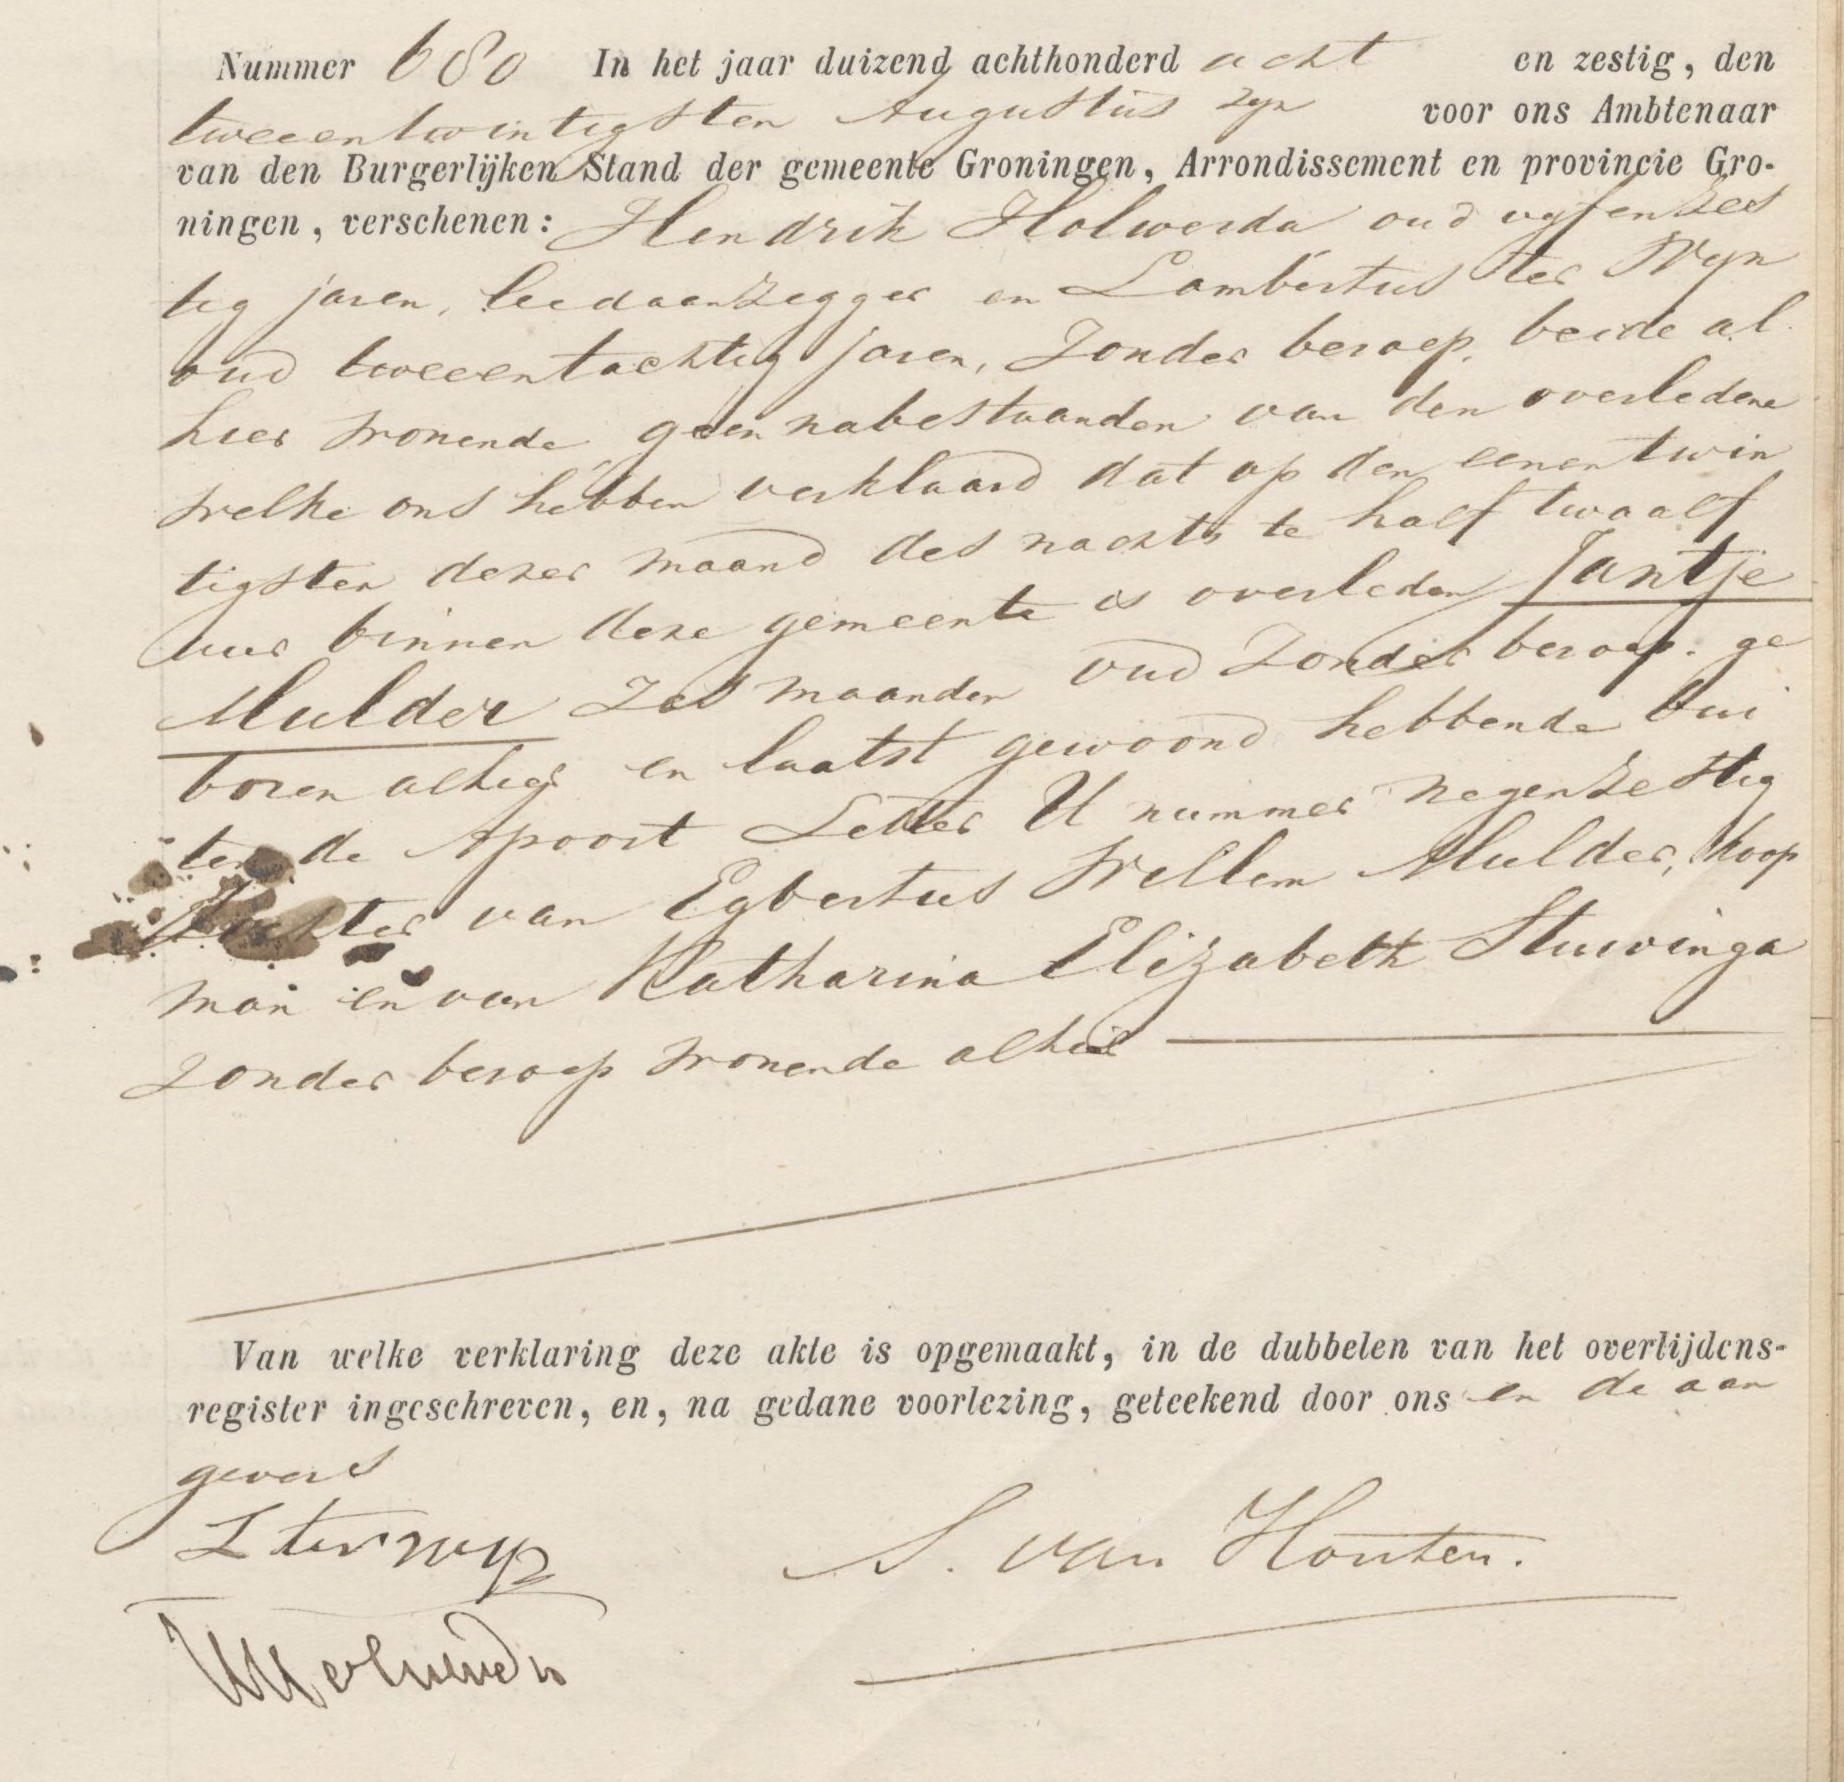 Nummer 680 In het jaar duizend achthonderd acht en zestig, den
tweeentwintigsten Augustus zijn voor ons Ambtenaar
van den Burgerlijken Stand der gemeente Groningen, Arrondissement en provincie Gro-
ningen, verschenen: Hendrik Holwerda oud vyfenzes
tig jaren, leedaanzegger en Lambertus ter Wyn
oud tweeentachtig jaren, Zonder beroep, beide al
hier wonende geen nabestaanden van den overledene
welke ons hebben verklaard dat op den eenentwin
tigsten dezer maand des nachts te half twaalf
uur binnen deze gemeente is overleden Jantje
Mulder Zes maanden oud Zonder beroep. ge
boren alhier en laatst gewoond hebbende bui
ten de Apoort Letter U nummer negenzestig
Dochter van Egbertus Willem Mulder, Koop
man en van Katharina Elizabeth Stuivinga
Zonder beroep wonende alhier
Van welke verklaring deze akte is opgemaakt, in de dubbelen van het overlijdens-
register ingeschreven, en, na gedane voorlezing, geteekend door ons en de aan
gevers
L ter Wyn
S. van Houten.